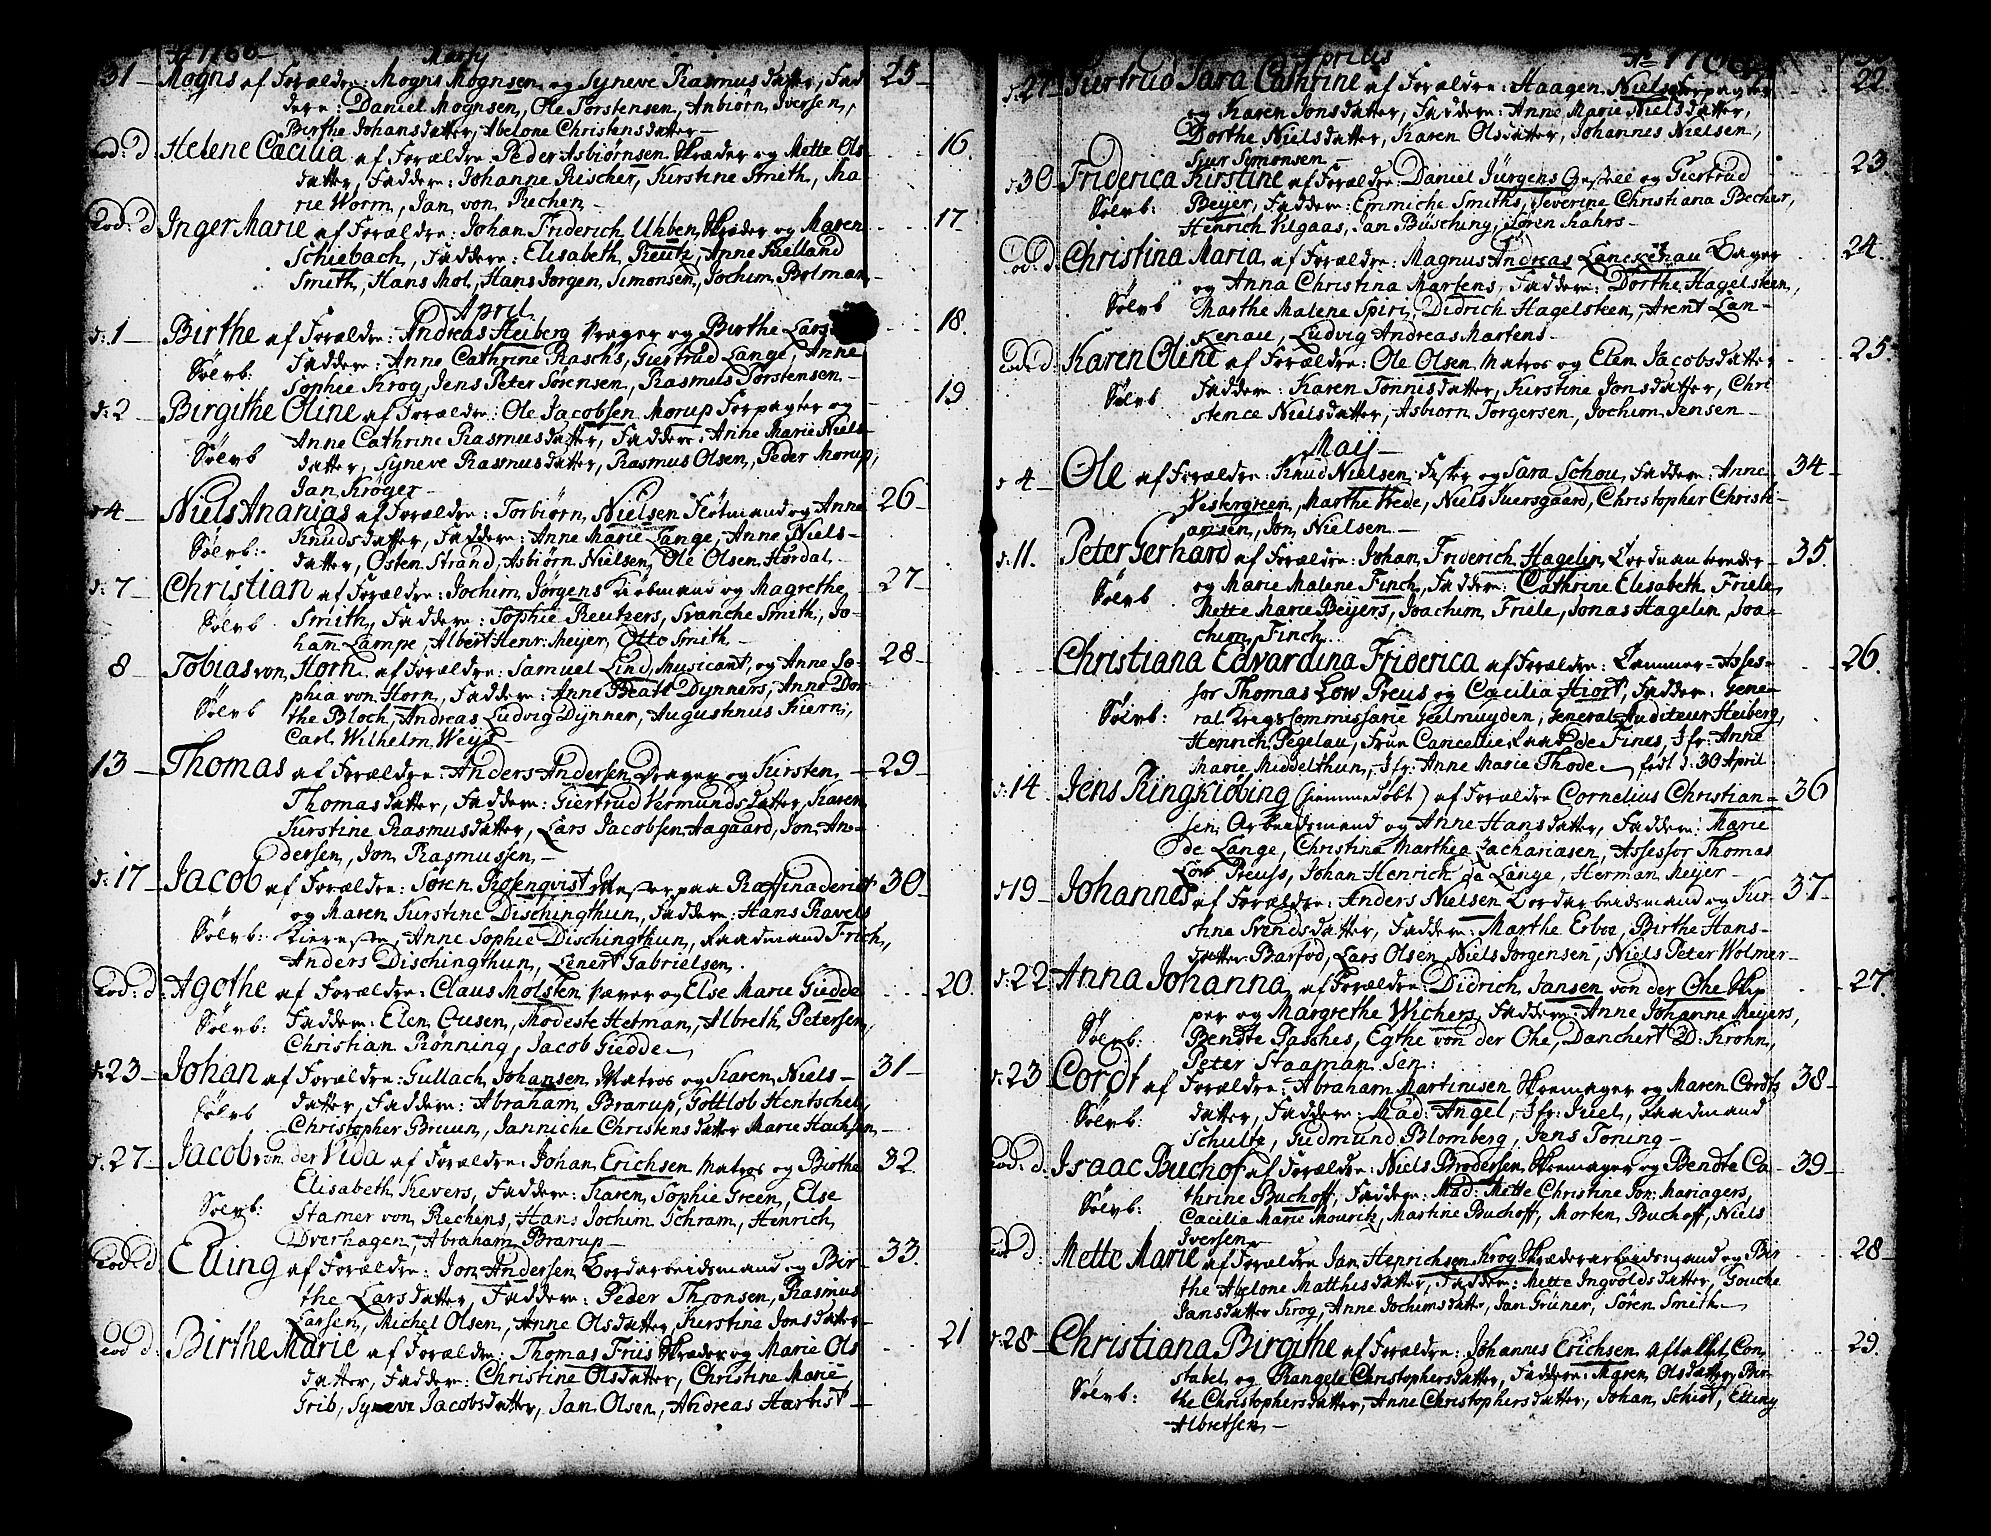 Ao 1766 Martij
31 Mogns af Forældre: Mogns Mognsen og Syneve Rasmusdatter, Fad- 25
dere: Daniel Mognsen, Ole Torstensen, Anbiørn Iversen,
Birthe Johansdatter, Abelone Christensdatter
Eod: d. Helene Cæcilia af Forældre: Peder Asbiørnsen Skræder og Mette Ols- 16.
datter, Faddere: Johanne Rischer, Kirstine Smith, Ma-
rie Worm, Jan von Rechen
Eod: d. Inger Marie af Forældre: Johan Friderich Uhben Skræder og Maren 17
Schiebach, Faddere: Elisabeth Reutz, Anne Kielland
Smith, Hans Mol, Hans Jørgen Simonsen, Jochim Bolman
April
d: 1 Birthe af Forældre: Andreas Heiberg Drager og Birthe Lars 18
Sølvb: Faddere: Anne Cathrine Rasch's, Giertrud Lange, Anne
Sophie Krog, Jens Peter Sørensen, Rasmus Torstensen
d: 2 Birgithe Oline af Forældre: Ole Jacobsen Morup Forpagter og 19
Anne Cathrine Rasmusdatter, Faddere: Anne Marie Niels-
Sølvb datter, Syneve Rasmusdatter, Rasmus Olsen, Peder Morup,
Jan Krøger
d 4 Niels Ananias af Forældre: Torbiørn Nielsen Flötmand og Anne 26
Sølvb: Knudsdatter, Faddere: Anne Marie Lange, Anne Niels-
datter, Osten Strand, Asbiørn Nielsen, Ole Olsen Hordal
d: 7 Christian af Forældre: Jochim Jørgens Kiøbmand og Magrethe 27
Sølvb Smith, Faddere: Sophie Reutzers, Svanche Smith, Jo-
han Lampe, Albert Henr: Meyer, Otto Smith
8 Tobias von Horn af Forældre: Samuel Lind Musicant, og Anne So- 28
phia von Horn, Faddere: Anne Beate Dynners, Anne Dor-
Sølvb the Bloch, Andreas Ludvig Dÿnner, Augustinus Kiern,
Carl Wilhelm Weys
13 Thomas af Forældre: Anders Andersen Drager og Kirsten 29
Thomasdatter, Faddere: Giertrud Vermundsdatter, Karen
Kirstine Rasmusdatter, Lars Jacobsen Aagaard, Jon An-
dersen, Jon Rasmussen
d: 17 Jacob af Forældre: Søren Rosenqvist Mester paa Raffinaderiet 30
og Maren Kirstine Dischingthun, Faddere: Hans Ravels
Sølvb: Kiereste, Anne Sophie Dischingthun, Raadmand Frich,
Anders Dischingthun, Lenert Gabrielsen
Eod: d: Agothe af Forældre: Claus Molsten Væver og Else Marie Giedde 20.
Sølvb: Faddere: Elen Cusen, Modeste Hetman, Albreth Petersen,
Christian Rønning, Jacob Giedde
d: 23 Johan af Forældre: Gullach Johansen Matros og Karen Niels- 31
Sølvb datter, Faddere: Abraham Brarup, Gottlob Hentschel,
Christopher Bruun, Janniche Christensdatter Marie Hachsen
d. 27 Jacob von der Vida af Forældre: Johan Erichsen Matros og Birthe 32
Elisabeth Kevers, Faddere: Karen Sophie Green, Else
Sølvb: Stamer von Rechens, Hans Jochim Schram, Hinrich
Dverhagen, Abraham Brarup
Eod: d. Elling af Forældre: Jon Andersen Bordarbeidsmand og Bir- 33.
the Larsdatter, Faddere: Peder Thronsen, Rasmus
Larsen, Michel Olsen, Anne Olsdatter, Kirstine Jonsdatter
Eod d. Birthe Marie af Forældre: Thomas Friis Skræder og Marie Ols- 21
datter, Faddere: Christine Olsdatter, Christine Marie
Grib, Syneve Jacobsdatter, Jan Olsen, Andreas Harbist
Aprilis Ao 1766
d: 27 Giertrud Sara Cathrine af Forældre: Haagen Niels Forpagter 22.
og Karen Jonsdatter, Faddere: Anne Marie Nielsdatter,
Dorthe Nielsdatter, Karen Olsdatter, Johannes Nielsen,
Siur Simonsen
d 30 Friderica Kirstine af Forældre: Daniel Jürgens og Giertrud 23.
Sølvb: Beyer, Faddere: Emmiche Smiths, Severine Christiana Becher,
Henrich Vlgaas, Jan Büsching, Søren Kahrs
Eod. d. Christina Maria af Forældre: Magnus Andreas Lanckenau Bager 24.
og Anna Christina Martens, Faddere: Dorthe Hagelsteen,
Sølvb Marthe Malene Spiri, Didrich Hagelsteen, Arent Lan-
kenau, Ludvig Andreas Martens
Eod: d: Karen Oline af Forældre: Ole Olsen Matros og Elen Jacobsdatter 25.
Sølvb Faddere: Karen Tønnisdatter, Kirstine Jonsdatter, Chri-
stence Nielsdatter, Asbiorn Torgersen, Jochim Jensen
Maij
d 4 Ole af Forældre: Knud Nielsen Fisker og Sara Schou, Faddere: Anne 34
Vestergreen, Marthe Wede, Niels Suersgaard, Christopher Christi-
ansen, Jon Nielsen
d. 11. Peter Gerhard af Forældre: Johan Friderich Hagelin Corduanbereder 35.
Sølvb og Marie Malene Finch, Faddere: Cathrine Elisabeth Friele,
Mette Marie Beyers, Joachim Friele, Jonas Hagelin, Joa-
chim Finch
Christiana Edvardina Friderica af Forældre: Cammer-Asses- 26.
sor Thomas Low Preus og Cæcilia Hiort, Faddere: Gene-
Sølvb: ral Krigs Commissarie Geelmuyden, General Auditeur Heiberg,
Henrich Pegelau, Frue Cancellie Raad de Fines, Jfr: Anne
Marie Middelthun, Jfr: Anne Marie Thode, født d: 30 April
d: 14 Jens Ringkiøbing (hiemmedøbt) af Forældre Cornelius Christian- 36
sen Arbeidsmand og Anne Hansdatter, Faddere: Marie
de Lange, Christina Marthea Zachariasen, Assessor Thomas
Low Preuss, Johan Henrich de Lange, Herman Meyer
d 19 Johannes af Forældre: Anders Nielsen Bordarbeidsmand og Kir- 37
stine Svendsdatter, Faddere: Marthe Erboe, Birthe Hans-
datter Barfod, Lars Olsen, Niels Jørgensen, Niels Peter Wolmer
d: 22 Anna Johanna af Forældre: Didrich Jansen von der Ohe Skip- 27.
per og Margrethe Wichers, Faddere: Anne Johanne Meyers,
Sølvb: Bendte Pasches, Egthe von der Ohe, Danchert D: Krohn,
Peter Staaman Sen:
d: 23 Cordt af Forældre: Abraham Martinisen Skomager og Maren Cordts- 38
Sølvb: datter, Faddere: Mad: Angel, Jfr: Juel, Raadmand
Schultz, Gudmund Blomberg, Jens Toning
Eod: d. Isaac Buchof af Forældre: Niels Brodersen Skomager og Bendte Ca- 39
Sølvb: thrine Buchoff, Faddere: Mad: Mette Christine Jon: Mariagers,
Cæcilia Marie Mouritz, Martine Buchoff, Morten Buchoff, Niels
Iversen
Eod: d. Mette Marie af Forældre Jan Henrichsen Krog Skræderarbeidsmand og Bir- 28
the Abelone Matthisdatter, Faddere: Mette Ingvoldsdatter, Gouche
Jansdatter Krog, Anne Jochimsdatter, Jan Grüner, Søren Smith
d: 28 Christiana Birgithe af Forældre: Johannes Erichsen aftakket Con- 29.
Sølvb: stabel og Rangele Christophersdatter, Faddere: Maren Olsdatter, Bir-
the Christophersdatter, Anne Christophersdatter, Johan Schidt, Elling
Albretsen